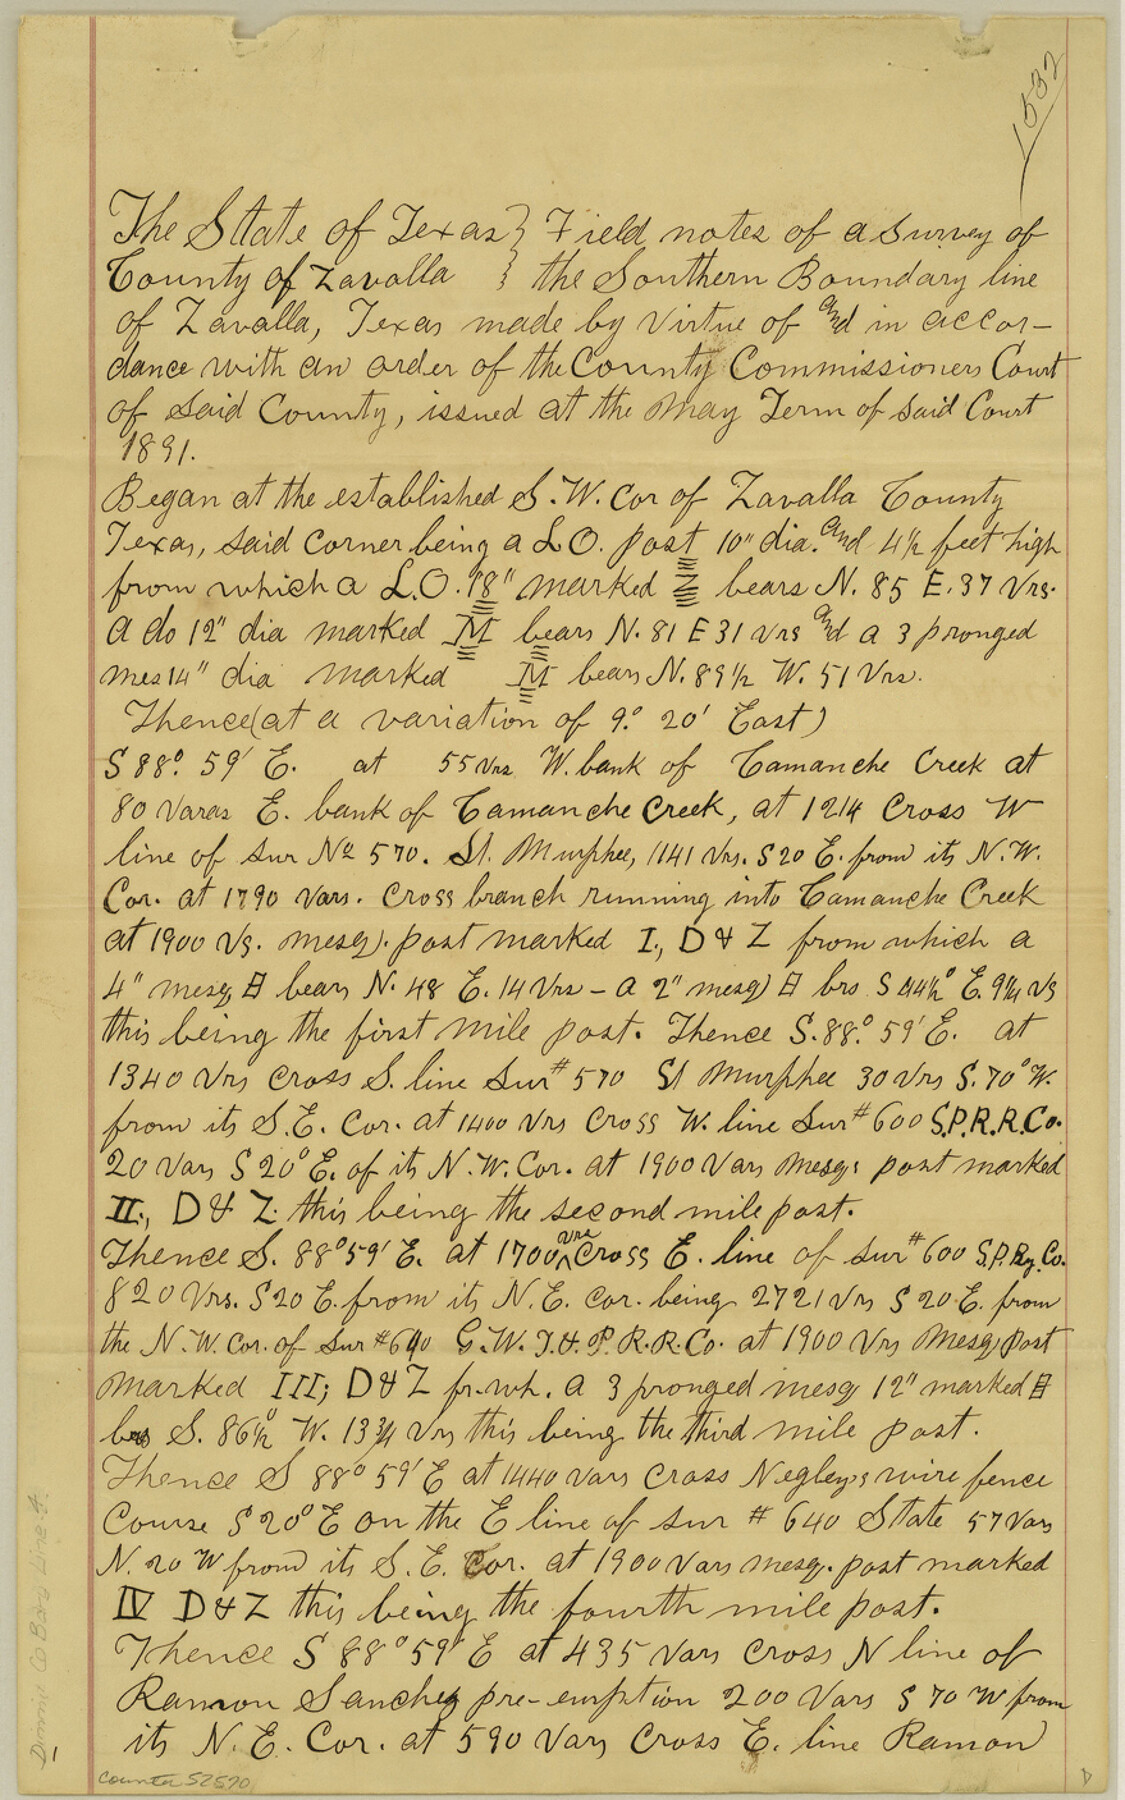 1532
The State of Texas } Field notes of a survey of
County of Zavalla } the Southern Boundary line
of Zavalla, Texas made by virtue of and in accor-
dance with an order of the County Commissioners Court
of said County, issued at the May Term of said Court
1891.
Began at the established S.W. Cor of Zavalla County
Texas, said corner being a L.O. post 10" dia. and 4½ feet high
from which a L.O. 18" marked Z bears N. 85 E. 37 Vrs.
a do 12" dia marked M bears N. 81 E 31 vrs and a 3 pronged
mes 14" dia marked M bears N. 89½ W. 51 Vrs.
Thence (at a variation of 9° 20' East)
S 88° 59' E. at 55 vrs W. bank of Camanche Creek at
80 varas E. bank of Camanche Creek, at 1214 Cross W
line of Sur No 570. St. Murphee, 1141 Vrs. S 20 E. from its N.W.
Cor. at 1790 Vars. Cross branch running into Camanche Creek
at 1900 Vs. mesq). post marked I., D & Z from which a
4" mesq bears N. 48 E. 14 Vrs - a 2" mesq) brs S 44½° E. 9¼ vs
this being the first mile post. Thence S. 88° 59' E. at
1340 Vrs Cross S. line Sur # 570 St Murphee 30 Vrs S. 70° W.
from its S.E. Cor. at 1400 Vrs Cross W. line Sur # 600 S.P.R.R.Co.
20 Vars S 20° E. of its N.W. Cor. at 1900 Vars mesq. post marked
II., D & Z. this being the second mile post.
Thence S. 88° 59' E. at 1700 vrs Cross E. line of Sur # 600 S.P.Ry.Co.
820 Vrs. S 20 E. from its N.E. cor. being 2721 Vrs S 20 E. from
the N.W. Cor. of Sur # 640 G.W.T.& P.R.R.Co. at 1900 Vrs Mesq) Post
marked III; D & Z fr. wh. a 3 pronged mesq 12" marked
brs S. 86½° W. 13¾ Vrs this being the third mile post.
Thence S 88° 59' E at 1440 vars Cross Negley's wire fence
Course S 20° E on the E line of Sur # 640 State 57 Vars
N. 20 W from its S.E. Cor. at 1900 Vars mesq. post marked
IV D & Z this being the fourth mile post.
Thence S 88° 59' E at 435 Vars Cross N line of
Ramon Sanchez pre-emption 200 Vars S 70 W from
its N.E. Cor. at 590 Vars Cross E. line Ramon
counter 52570
Dimmit Co Bdry Line 4.
1
D